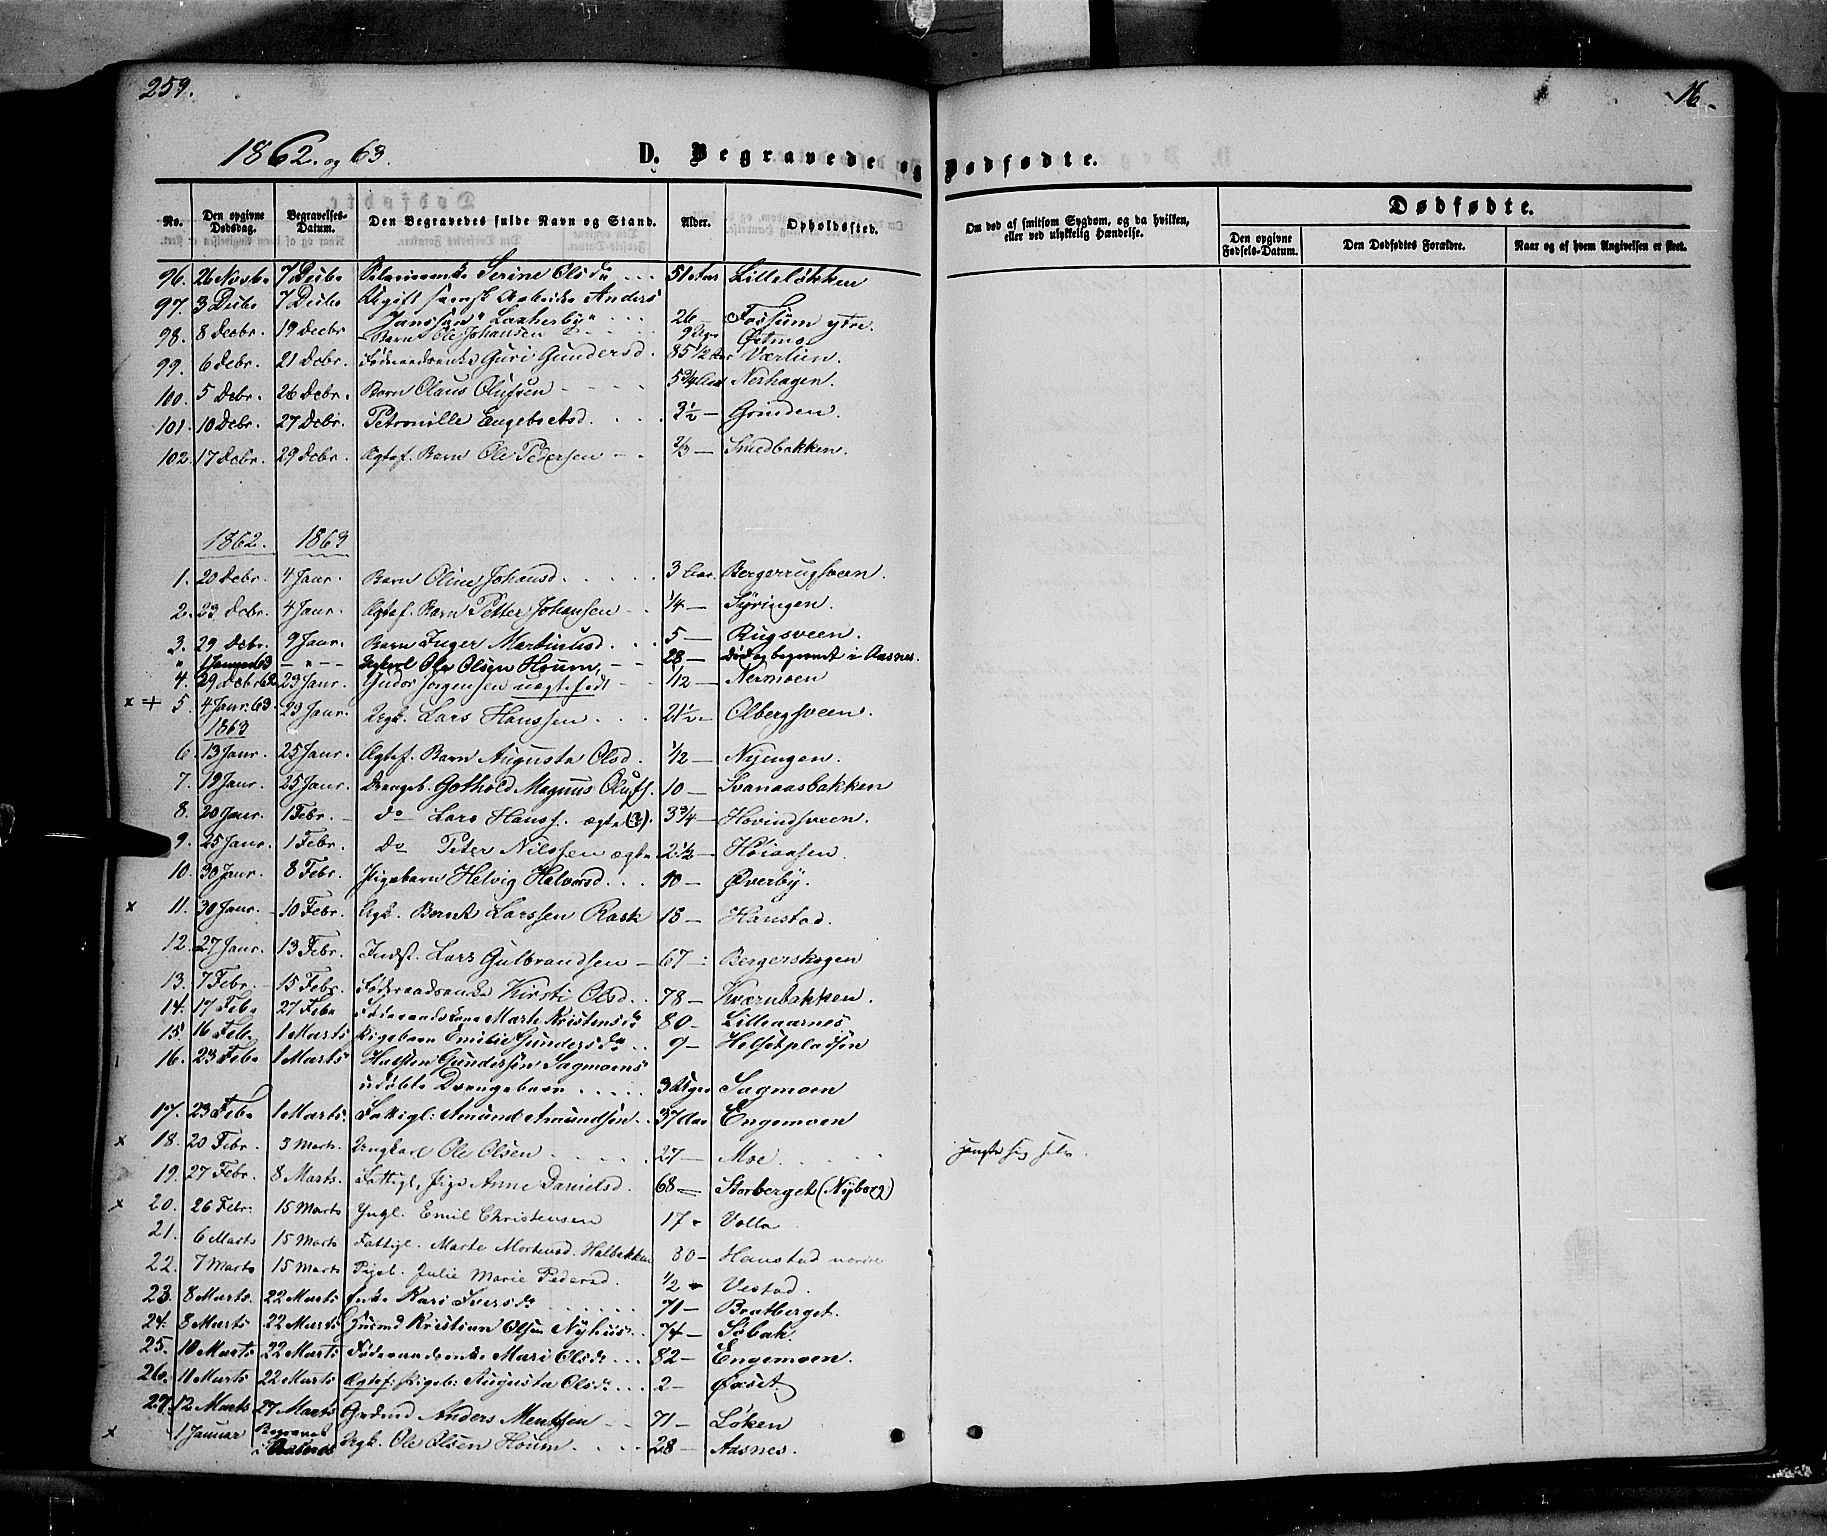 259.
16
1862. og 63.
D. Begravede og Dødfødte.
No. | Den opgivne Dødsdag. | Begravelses-Datum. | Den Begravedes fulde Navn og Stand. | Alder. | Opholdssted. | Om død af smitsom Sygdom, og da hvilken, eller ved ulykkelig Hændelse. | Dødfødte. | Den opgivne Fødsels-Datum. | Den Dødfødtes Forældre. | Naar og af hvem Angivelsen er skeet.
96. 26 Novbr 7 Decbr Serine Olsdr 51 Aar Lilleløkken
97. 3 Decbr 7 Decbr Ugift svensk Arbeider Anders
Janssen "Laxherby" 26 — Fossum ytre.
98. 8 Decbr. 19 Decbr Barn Ole Johansen 9 Dage Østmo
99. 6 Debr. 21 Debr. Føderaadsenke Guri Gundersd. 85 1/2 Aar Værlien.
100. 5 Debr. 26 Debr. Barn Olaus Olufsen 5 3/4 Aar Nerhagen.
101. 10 Debr. 27 Debr. Petronille Engebretsd. 3 1/2 — Grinden.
102. 17 Debr. 29 Debr. Ægtef. Barn Ole Pedersen 2/3 — Smedbakken.
1862. 1863
1. 20 Debr. 4 Janr. Barn Oline Johansd. 3 Aar. Bergerrugsveen.
2. 23 Debr. 4 Janr. Ægtef. Barn Petter Johansen 1/4 — Syringen.
3. 29 Debr. 9 Janr. Barn Inger Martinusd. 5 — Rugsveen.
" 1 Januar 63 — " — Ungkarl Ole Olsen Houm. 28 — død og begravet i Aasnes.
4. 29 Debr 62 23 Janr. Gudor Jørgensen uægte født 1/12 — Nermoen
x + 5. 4 Janr. 63. 23 Janr. Ungk. Lars Hanssen 21 1/2 — Olbergsveen.
1863
6. 13 Janr. 25 Janr. Ægtef. Barn Augusta Olsd. 1/2 — Nyengen.
7. 19 Janr. 25 Janr. Drengeb. Gothold Magnus Olufs. 10 — Svanaasbakken
8. 20 Janr. 1 Febr. do Lars Hanss. ægte (?). 3 3/4 — Hovindsveen.
9. 25 Janr. 1 Febr. do Peter Nilssen ægte 2 1/2 — Høiaasen.
10. 30 Janr. 8 Febr. Pigebarn Helvig Halvorsd. 10 — Øverby.
x 11. 30 Janr. 10 Febr. Ungk. Bernt Larssen Rask 18 — Hanstad.
12. 27 Janr. 13 Febr. Indst. Lars Gulbrandsen 67 — Bergerskogen
13. 7 Febr. 15 Febr. Føderaadsenke Kirsti Olsd. 78 — Kværnbakken.
14. 17 Febr 27 Febr Føderaadskone Marte Kristensdr 80 — Lilleaarnes
15. 16 Feb. 1 Marts Pigebarn Emilie Gundersdr 9 — Helsetpladsen
16. 23 Febr 1 Marts Halsten Gundersen Sagmoens
udøbte Drengebarn 3 Uger Sagmoen
17. 23 Febr 1 Marts. Fattigl: Amund Amundsen 37 Aar Engemoen
x 18. 20 Febr. 3 Marts. Ungkarl Ole Olsen 27 — Moe hængte sig selv.
19. 27 Febr. 8 Marts. Fattigl. Pige Anne Danielsd. 68 — Storberget (Nyborg)
x 20. 26 Febr. 15 Marts Yngl. Emil Christensen 17 " Volla
21. 6 Marts 15 Marts Fattigl. Marte Mortensd. Halbakken 80 — Hanstad nordre
22. 7 Marts 15 Marts Pigeb. Julie Marie Pedersd. 1/2 " Vestad.
23. 8 Marts. 22 Marts Enke Kari Iversdr 71 — Bratberget.
24. 8 Marts 22 Marts Huusmd Kristian Olsen Nyhus 74 — Søbak.
25. 10 Marts 22 Marts Føderaadsenke Mari Olsdr 82 — Engemoen.
26. 11 Marts 22 Marts Ægtef: Pigeb: Augusta Olsdr 2 — Øvset.
27. 12 Marts 27 Marts Gaardmd Anders Mentzen 71 — Løken
x 1 Januar Begravet i Aasnes Ungk. Ole Olsen Houm. 28 — Aasnes.